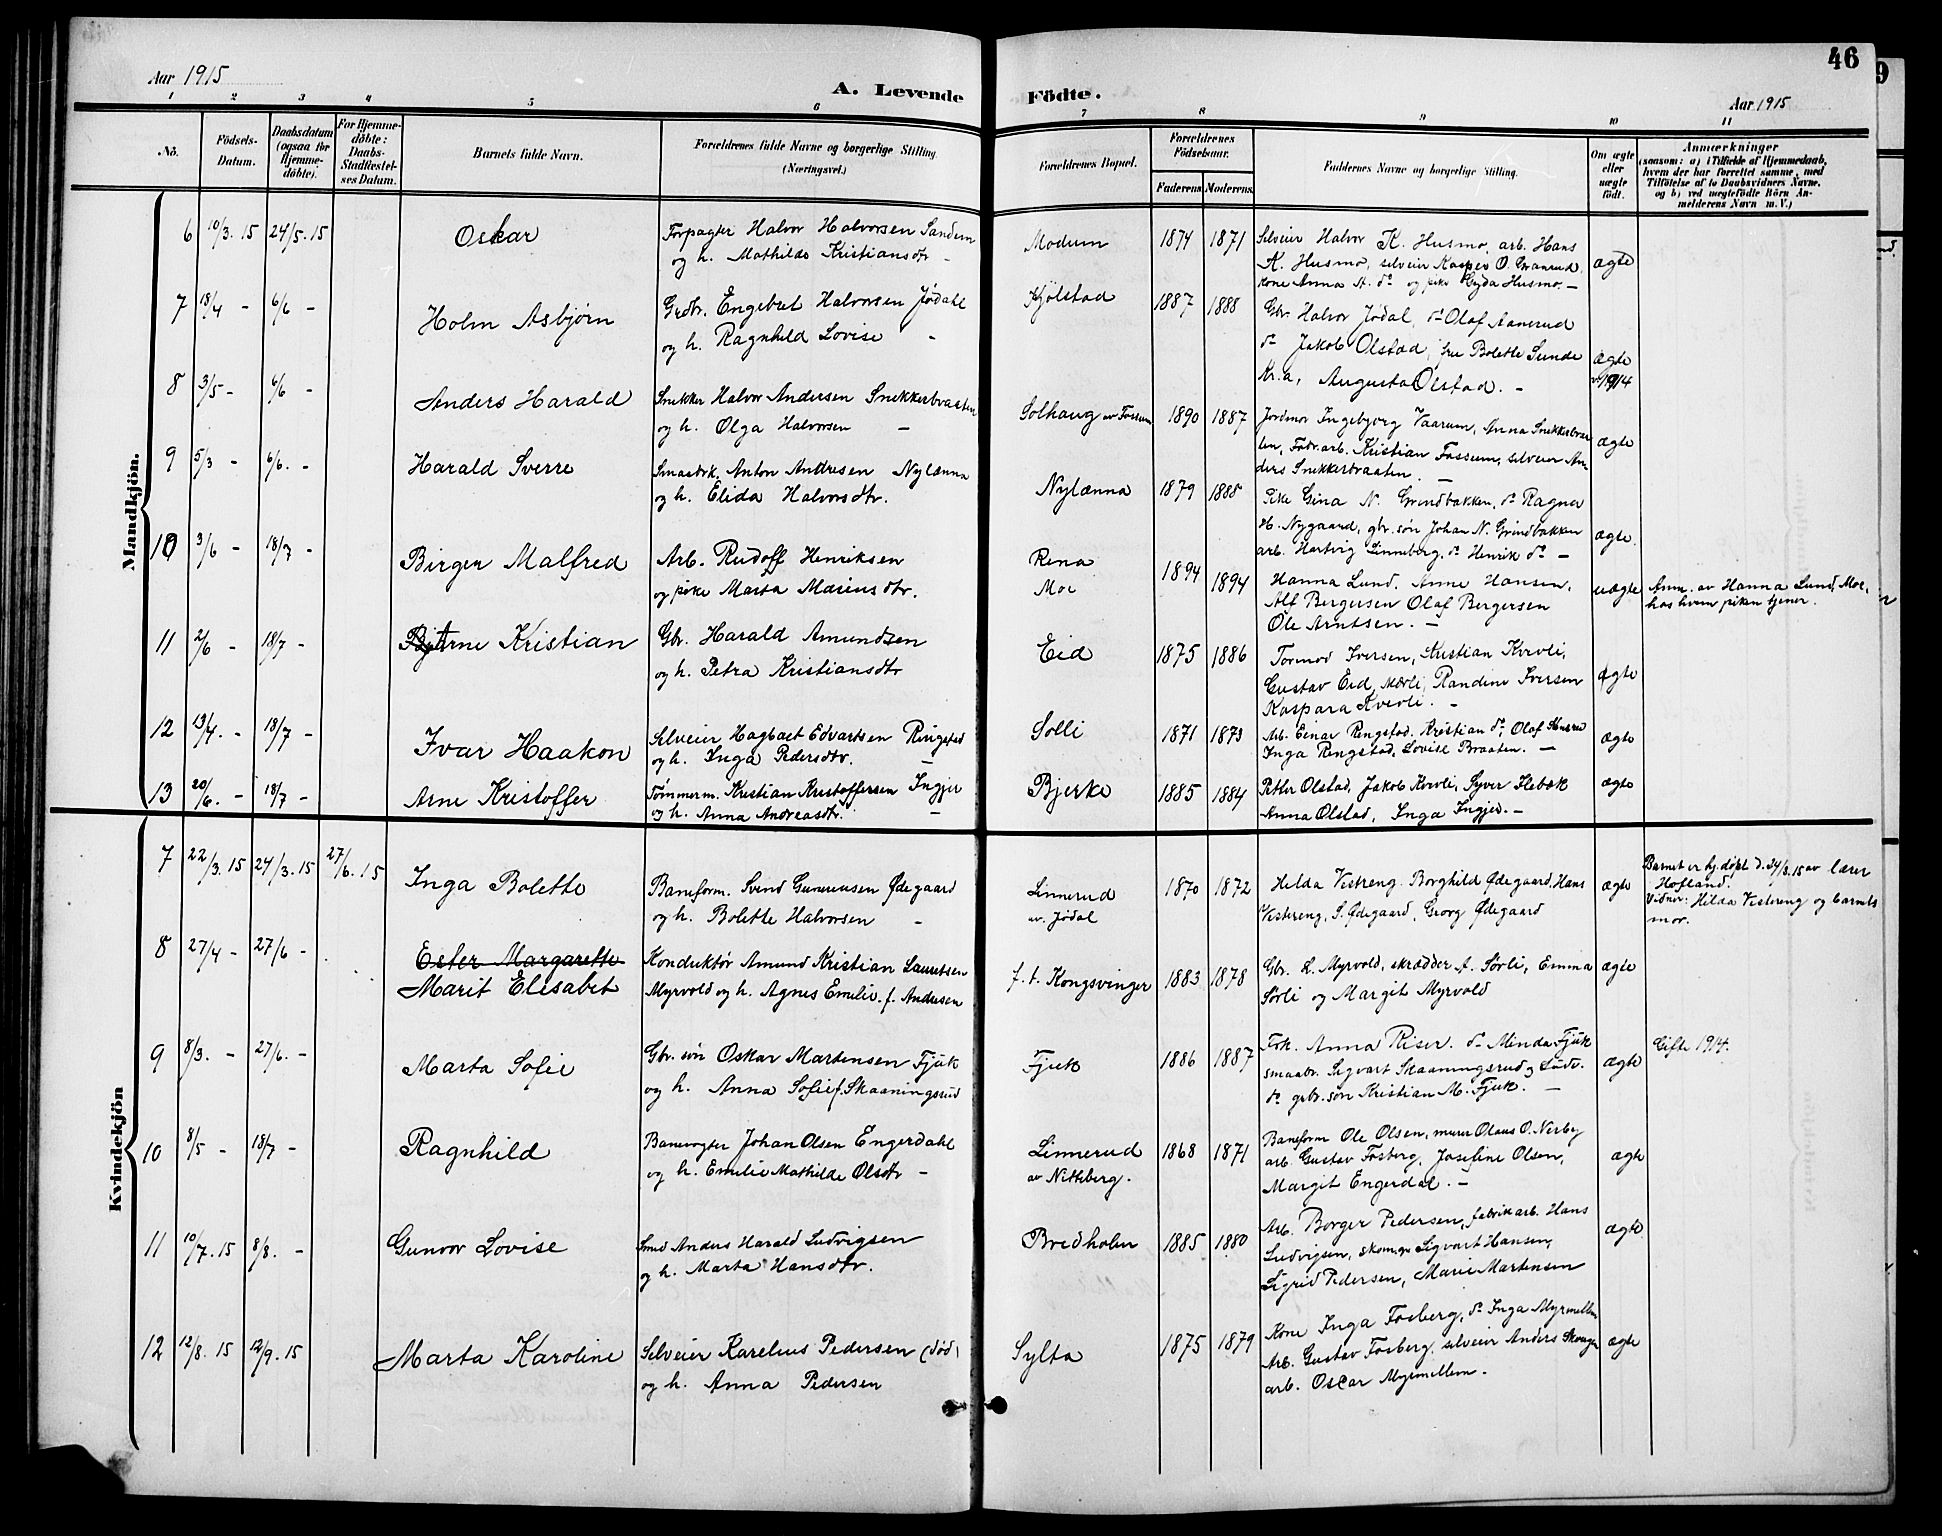 46
Aar 1915
A. Levende Födte.
Aar 1915
1 2 3 4 5 6 7 8 9 10 11
No.
Födsels-Datum.
Daabsdatum (ogsaa for Hjemme-döbte).
For Hjemme-döbte: Daabs-Stadfæstel-ses Datum.
Barnets fulde Navn.
Forældrenes fulde Navne og borgerlige Stilling (Næringsvei.)
Forældrenes Bopæl.
Forældrenes Födselsaar.
Faderens Moderens
Faddernes Navne og borgerlige Stilling.
Om ægte eller uægte födt.
Anmærkninger
(saasom: a) i Tilfælde af Hjemmedaab,
hvem der har forrettet samme, med
Tilföielse af to Daabsvidners Navne,
og b) ved uægtefödte Börn An-
melderens Navn m. V.)
Mandkjön.
6 10/3. 15 24/5. 15 Oskar
Forpagter Halvor Halvorsen Sandum
og h. Mathilde Kristiansdtr -
Modum 1874 1871
Selveier Halvor K. Husmo, arb. Hans
K. Husmo, selveier Kasper O. Granerud,
kone Anna A. do og pike Gyda Husmo. -
ægte
7 18/4 - 6/6 - Holm Asbjørn
Grdbr. Engebret Halvorsen Jødahl
og h. Ragnhild Lovise -
Kjölstad 1887 1888
Gbr Halvor Jødal, do Olaf Aanerud
do Jakob Olstad, fru Bolette Sunde
Kr.a, Augusta Olstad. -
ægte
1914
8 3/5 - 6/6 - Anders Harald
Snekker Halvor Andersen Snekkerbraaten
og h. Olga Halvorsen -
Solhaug av Fossum 1890 1887
Jordmor Ingebjørg Vaarum, Anna Snekkerbraa
ten, Fabr.arb. Kristian Fossum, selveier An
ders Snekkerbraaten. -
ægte
9 5/3 - 6/6. - Harald Sverre
Smaabrk. Anton Andersen Nylænna
og h. Elida Halvorsdtr.
Nylænna 1879 1885
Pike Gina N. Grindbakken, do Ragna
H. Nygaard, gbr. søn Johan N. Grindbakken
arb. Hartvig Linneberg, do Henrik do -
ægte.
10 3/6 - 18/7 - Birger Malfred
Arb. Rudolf Henriksen
og pike Marta Mariusdtr.
Rena
Moe
1894 1894
Hanna Lund. Anne Hansen,
Alf Bergersen Olaf Bergersen
Ole Arntsen. -
uægte
Anm. av Hanna Lund, Moe,
hos hvem piken tjener.
11 2/6 - 18/7 - Arne Kristian
Gbr. Harald Amundsen
og h. Petra Kristiansdtr
Eid 1875 1886
Tormod Iversen, Kristian Kverli,
Gustav Eid, Mærli, Randine Iversen
Kaspara Kverli. -
ægte
12 13/4. - 18/7 - Ivar Haakon
Selveier Hagbart Edvartsen Ringstad
og h. Inga Pedersdtr. -
Solli 1871 1873
Arb. Einar Ringstad, Kristian do, Olaf
Inga Ringstad, Lovise Braaten. -
ægte
13 20/6. - 18/7 - Arne Kristoffer
Tømmerm. Kristian Kristoffersen Ingjer
og h. Anna Andreasdtr. -
Bjerke 1885 1884
Petter Olstad, Jakob Kverli, Syver Flebæk
Anna Olstad, Inga Ingjer. -
ægte
Kvindekjön
7 22/3. 15 24/3. 15 27/6. 15 Inga Bolette
Baneform. Svend Gunerius­sen Ødegaard
og h. Bolette Halvorsen -
Linnerud
av. Jødal
1870 1872
Helda Vestreng. Borghild Ødegaard, Hans
Vestreng, S. Ødegaard, Georg Ødegaard
ægte
Barnet er hj. døpt d. 24/3. 15 av lærer
Hofland.
Vidner: Hilda Vestreng og barnets
mor.
8 27/4 - 27/6 - Ester Margarethe
Marit Elisabet
Konduktør Amund Kristian Lauritsen
Myrvold og h. Agnes Emilie. f. Andersen
f. t. Kongsvinger 1883 1878
Gbr. L. Myrvold, skrædder A. Sørli, Emma
Sørli og Margit Myrvold
ægte
9 8/3. - 27/6. - Marta Sofie
Gbr. søn Oskar Martensen Fjuk
og h. Anna Sofie f. Skaaningsrud
Fjuk 1886 1887
Frk. Anna Riser. do Minda Fjuk
smaabr. Sigvart Skaaningsrud, Ludv.
do, grbr. søn Kristian M. Fjuk. -
ægte
Gifte 1914.
10 8/5 - 18/7 - Ragnhild
Banevogter Johan Olsen Engerdahl
og h. Emilie Mathilde Olsdtr -
Linnerud
av Nitteberg.
1868 1871
Baneform Ole Olsen, murer Olaus O. Nerby
arb. Gustav Fosberg, Josefine Olsen,
Margit Engerdal. -
ægte
11 10/7. 15 8/8. - Gunvor Lovise
Smed Anders Harald Ludvigsen
og h. Marta Hansdtr.
Bredholen 1885 1880
Arb. Borger Pedersen, fabrikarb. Hans
Ludvigsen, skom. Sigvart Hansen,
Sigrid Pedersen, Marie Martensen
ægte
12 12/8. 15 12/9. 15 Marta Karoline
Selveier Karelius Pedersen (død)
og h. Anna Pedersen
Sylta 1875 1879
Kone Inga Fosberg, do Inga Myrmellem
Arb. Gustav Fosberg, selveier Anders
arb. Oscar Myrmellem.
ægte